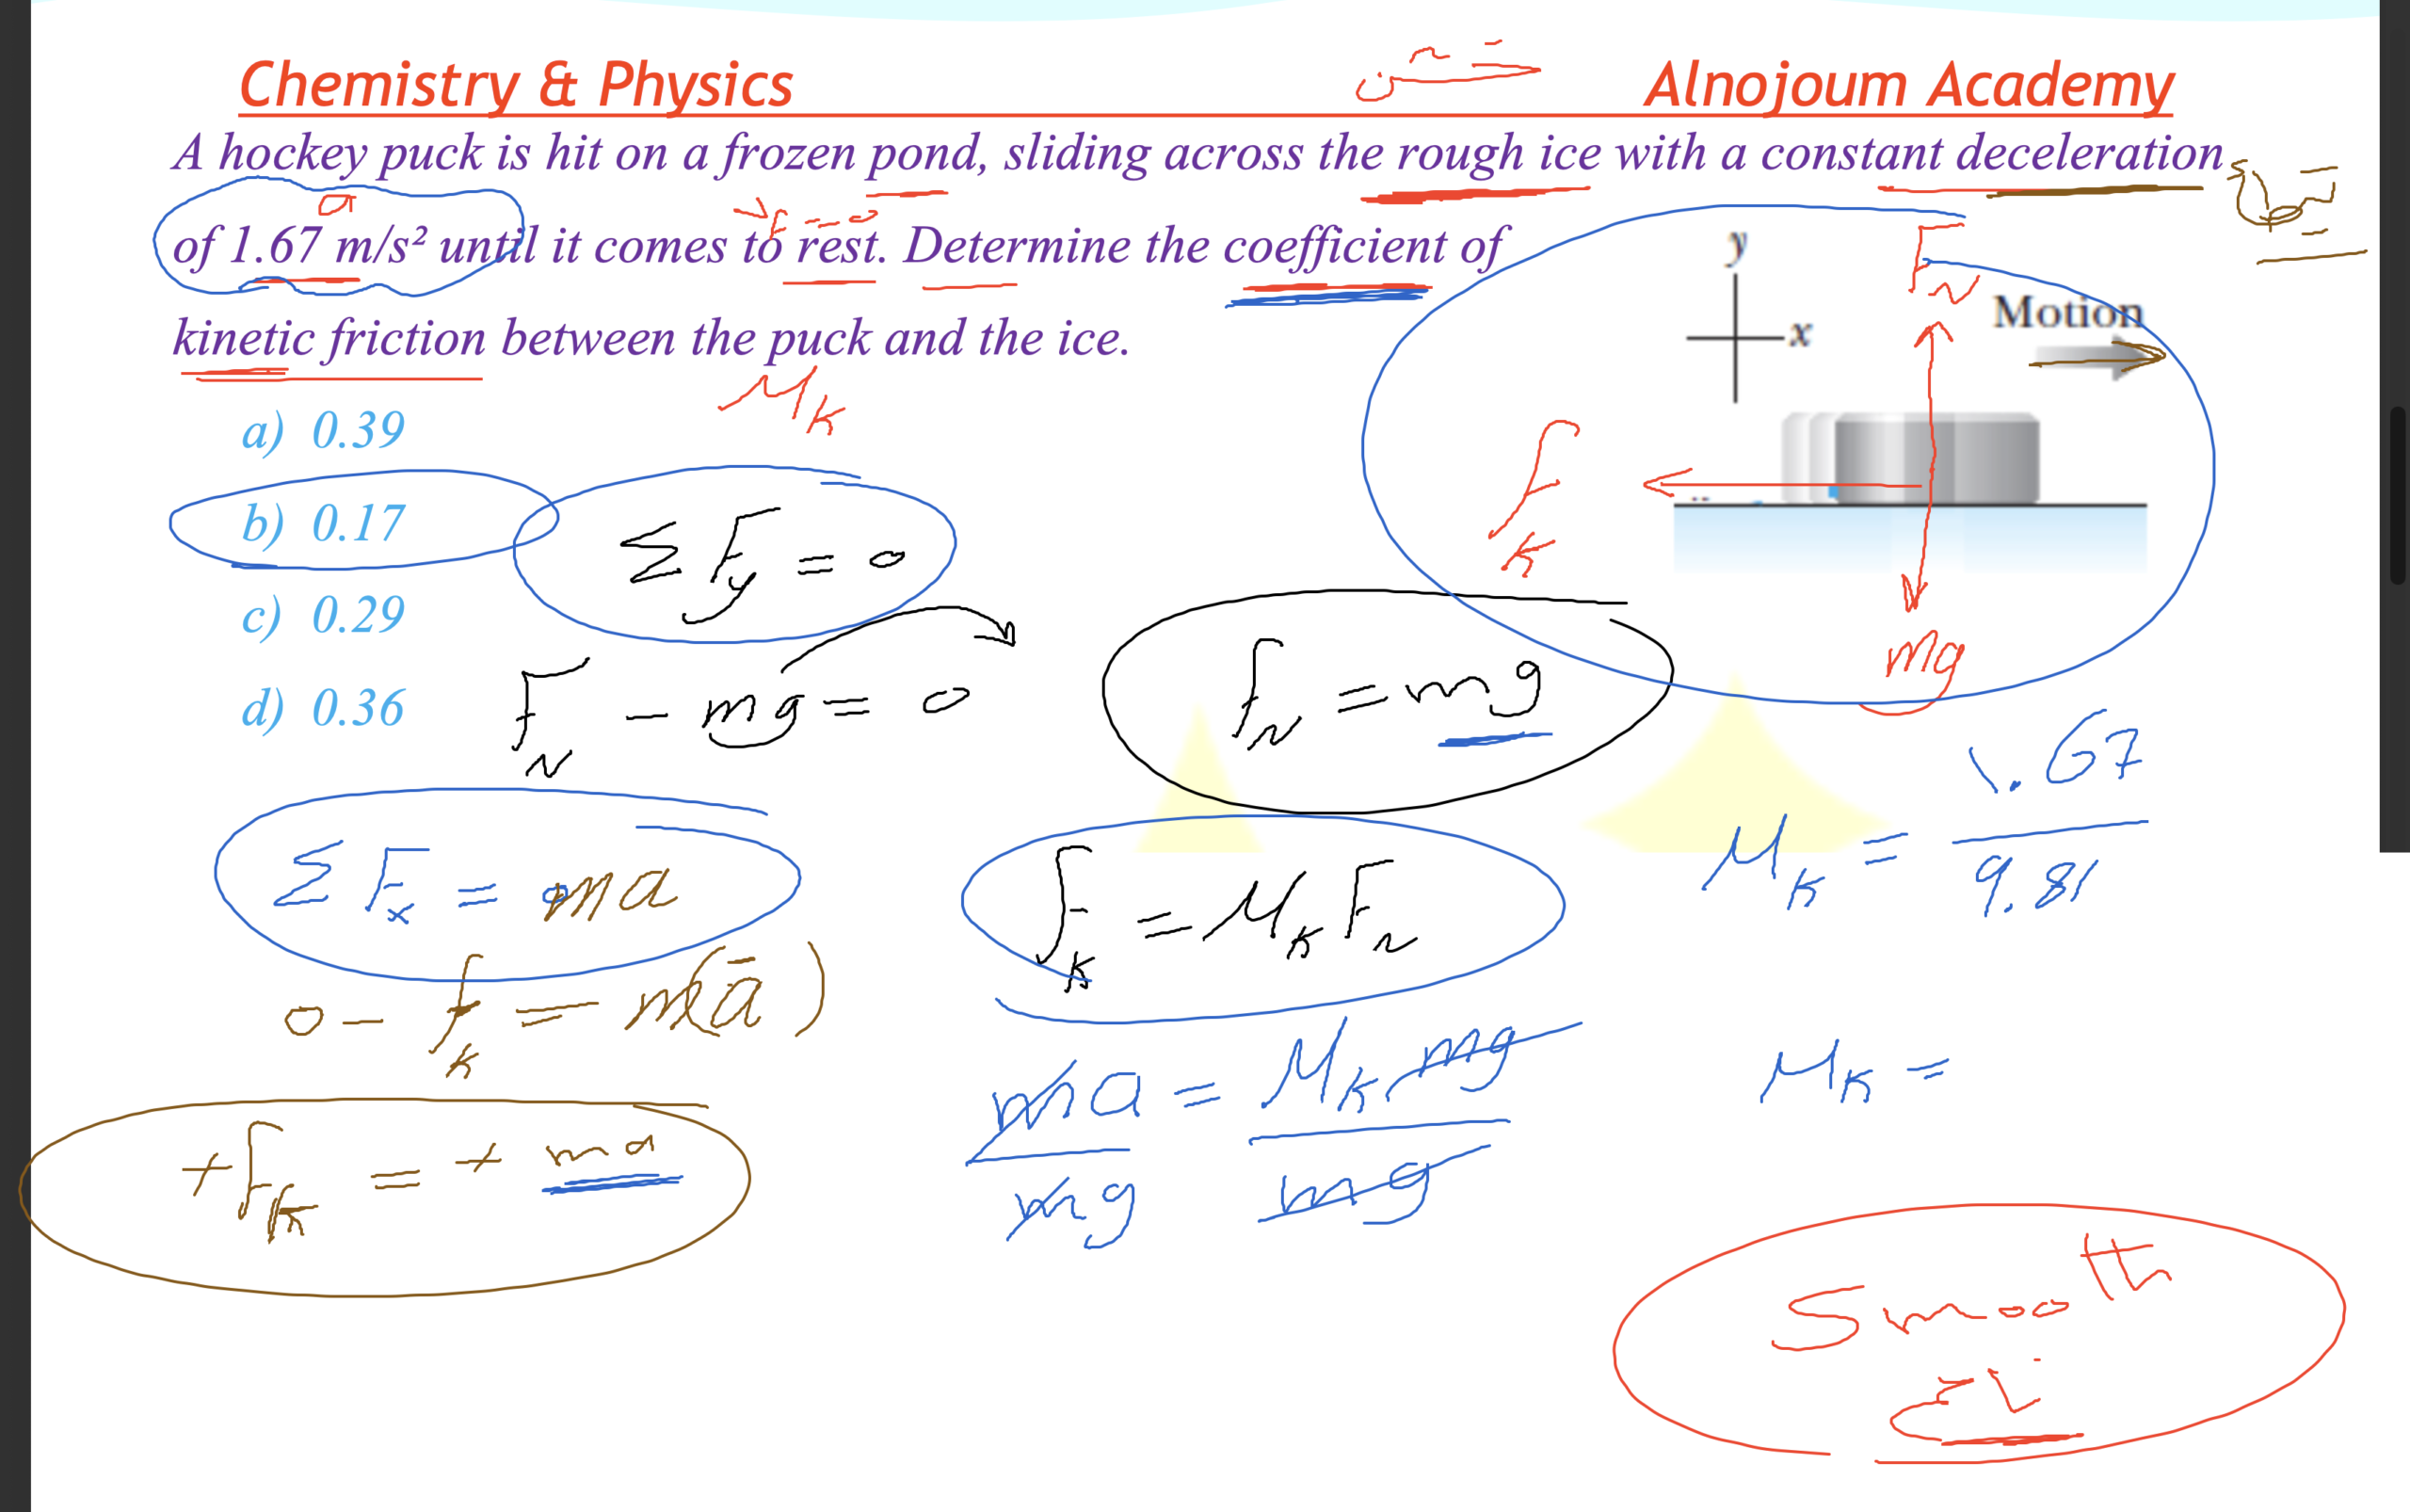 Chemistry & Physics خشن Alnojoum Academy
A hockey puck is hit on a frozen pond, sliding across the rough ice with a constant deceleration
a V_f = 0
of 1.67 m/s² until it comes to rest. Determine the coefficient of
kinetic friction between the puck and the ice.
μ_k
y
x
F_N
Motion
f_k
mg
a) 0.39
b) 0.17
c) 0.29
d) 0.36
Σ F_y = 0
F_N - mg = 0
F_N = mg
Σ F_x = ma
0 - f_k = m(-a)
+ F_k = + ma
F_k = μ_k F_N
ma = μ_k mg
mg mg
μ_k = 1.67
9.81
μ_k =
Smooth